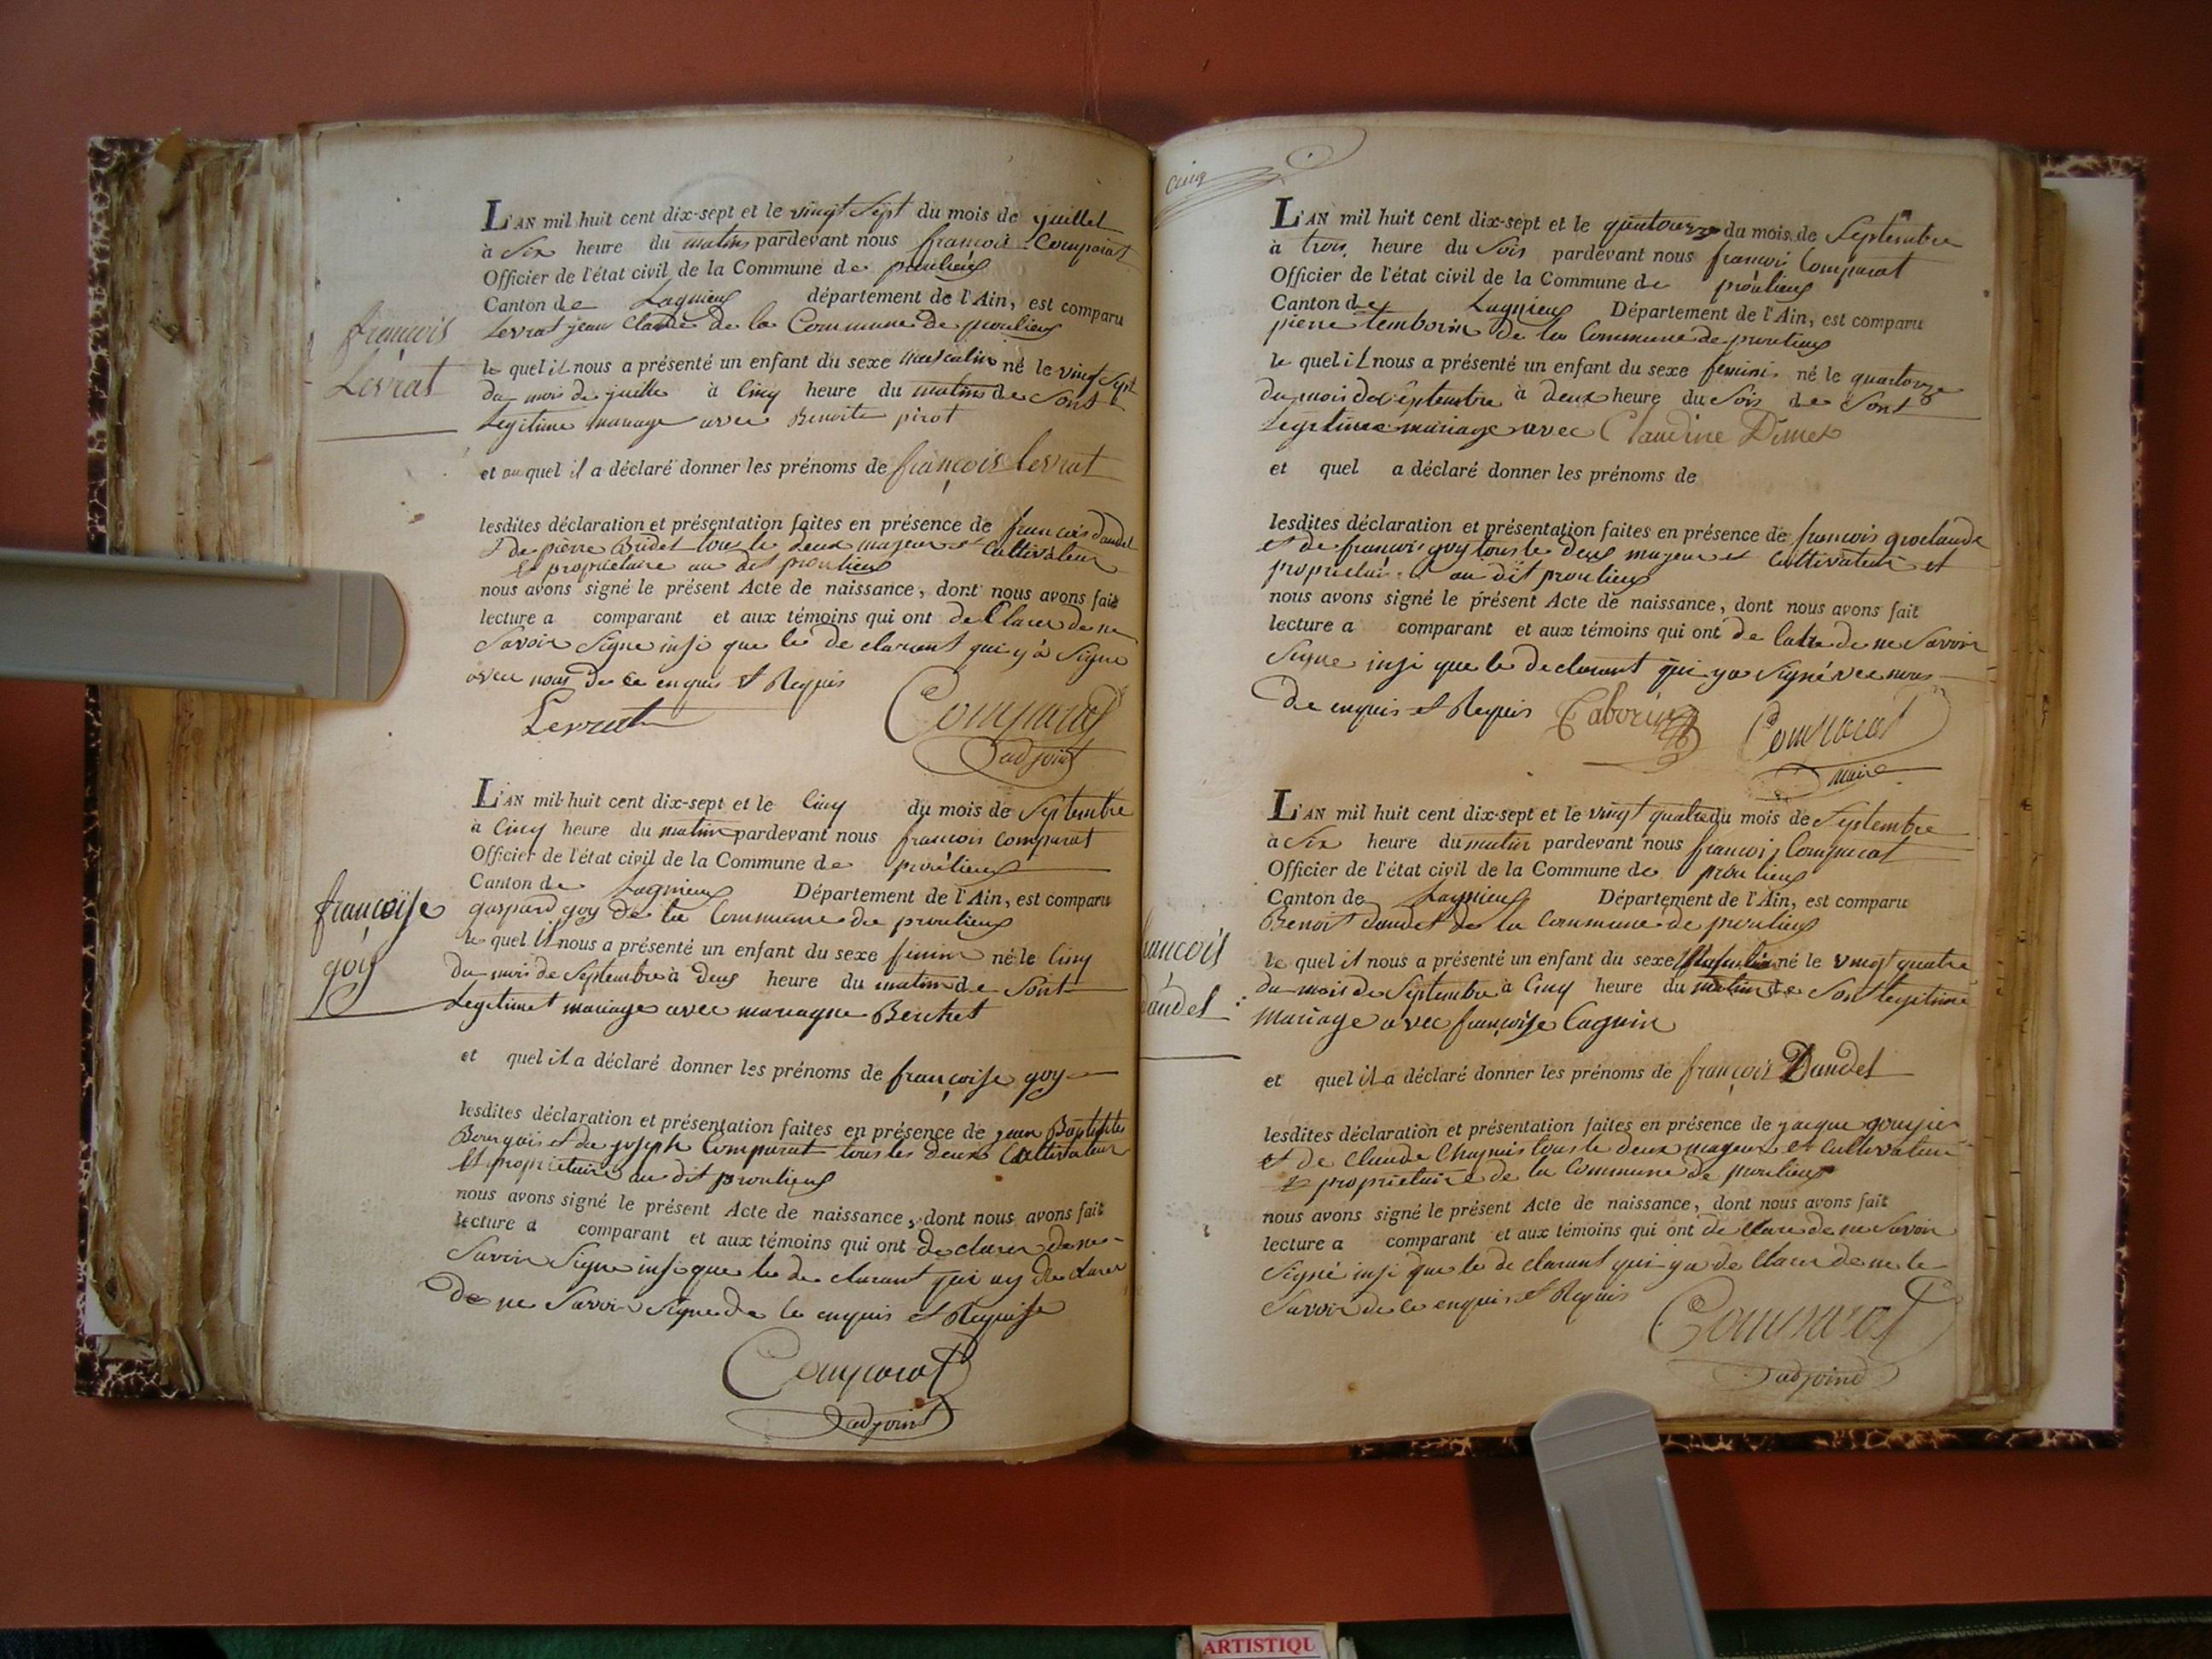 françois
Levrat
L'AN mil huit cent dix-sept et le vingt Sept du mois de juillet
à Six heure du matin pardevant nous françois Comparat
Officier de l'état civil de la Commune de proulieux
Canton de Lagnieux département de l'Ain, est comparu
Levrat jean Claude de la Commune de proulieux
le quel il nous a présenté un enfant du sexe masculin né le vingt Sept
du mois de juille à Cinq heure du matin de Sont
Legitime mariage avec Benoite pirot
et au quel il a déclaré donner les prénoms de françois levrat
lesdites déclaration et présentation faites en présence de francois daudet
Et de pierre Bridet tous le deux majeur et Cultivateur
Et proprietaire au dit proulieux
nous avons signé le présent Acte de naissance, dont nous avons fait
lecture a comparant et aux témoins qui ont de Clarer de ne
Savoir Signe insi que le de clarant qui y a Signe
avec nous de ce enquis Et Requis
Levrat Comparat
adjoint
françoise
goy
L'AN mil huit cent dix-sept et le Cinq du mois de Septembre
à Cinq heure du matin pardevant nous francois comparat
Officier de l'état civil de la Commune de proulieux
Canton de Lagnieux Département de l'Ain, est comparu
gaspard goy de la Commune de proulieux
le quel il nous a présenté un enfant du sexe feminin né le Cinq
du mois de Septembre à deux heure du matin de Sont
Legitimet mariage avec mariagne Berchet
et quel il a déclaré donner les prénoms de françoise goy
lesdites déclaration et présentation faites en présence de jean Baptiste
Bourgois et de joseph Comparat tous les deux Cultivateur
Et propriétaire au dit proulieux
nous avons signé le présent Acte de naissance, dont nous avons fait
lecture a comparant et aux témoins qui ont de clarer de ne
Savoir Signe insi que le de clarant qui ay de clarer
de ne Savoir Signe de ce enquis et Requise
Comparat
adjoint
cinq
L'AN mil huit cent dix-sept et le quatourze du mois de Septembre
à trois heure du Soir pardevant nous francois Comparat
Officier de l'état civil de la Commune de proulieux
Canton de Lagnieux Département de l'Ain, est comparu
pierre temborin de la Commune de proulieux
le quel il nous a présenté un enfant du sexe feminin né le quartorze
du mois de septembre à deux heure du Soir de Sont
Legitime mariage avec Claudine Dimet
et quel a déclaré donner les prénoms de
lesdites déclaration et présentation faites en présence de francois groclaude
et de francois goy tous le deux majeur et Cultivateur et
proprietaire au dit proulieux
nous avons signé le présent Acte de naissance, dont nous avons fait
lecture a comparant et aux témoins qui ont de ne Savoir
Signe insi que le de clarant qui y a Signé vec nous
de enquis et Requis Taborin Comparat
maire
francois
daudet
L'AN mil huit cent dix-sept et le vingt quatre du mois de Septembre
à Six heure du matin pardevant nous francois Comparat
Officier de l'état civil de la Commune de proulieux
Canton de Lagnieux Département de l'Ain, est comparu
Benoit daudet de la Commune de proulieux
le quel il nous a présenté un enfant du sexe Masculin né le vingt quatre
du mois de Septembre à Cinq heure du matin de Sont legitime
mariage avec françoise Cagnin
et quel il a déclaré donner les prénoms de françois Daudet
lesdites déclaration et présentation faites en présence de jacque goujer
et de Claude Chapuis tous le deux mageur et Cultivateur
et proprietaire de la Commune de proulieux
nous avons signé le présent Acte de naissance, dont nous avons fait
lecture a comparant et aux témoins qui ont de Clare de ne Savoir
Signé insi que le de clarant qui y a de Clarer de ne le
Savoir de ce enquis et Requis
Comparat
adjoint
ARTISTIQU